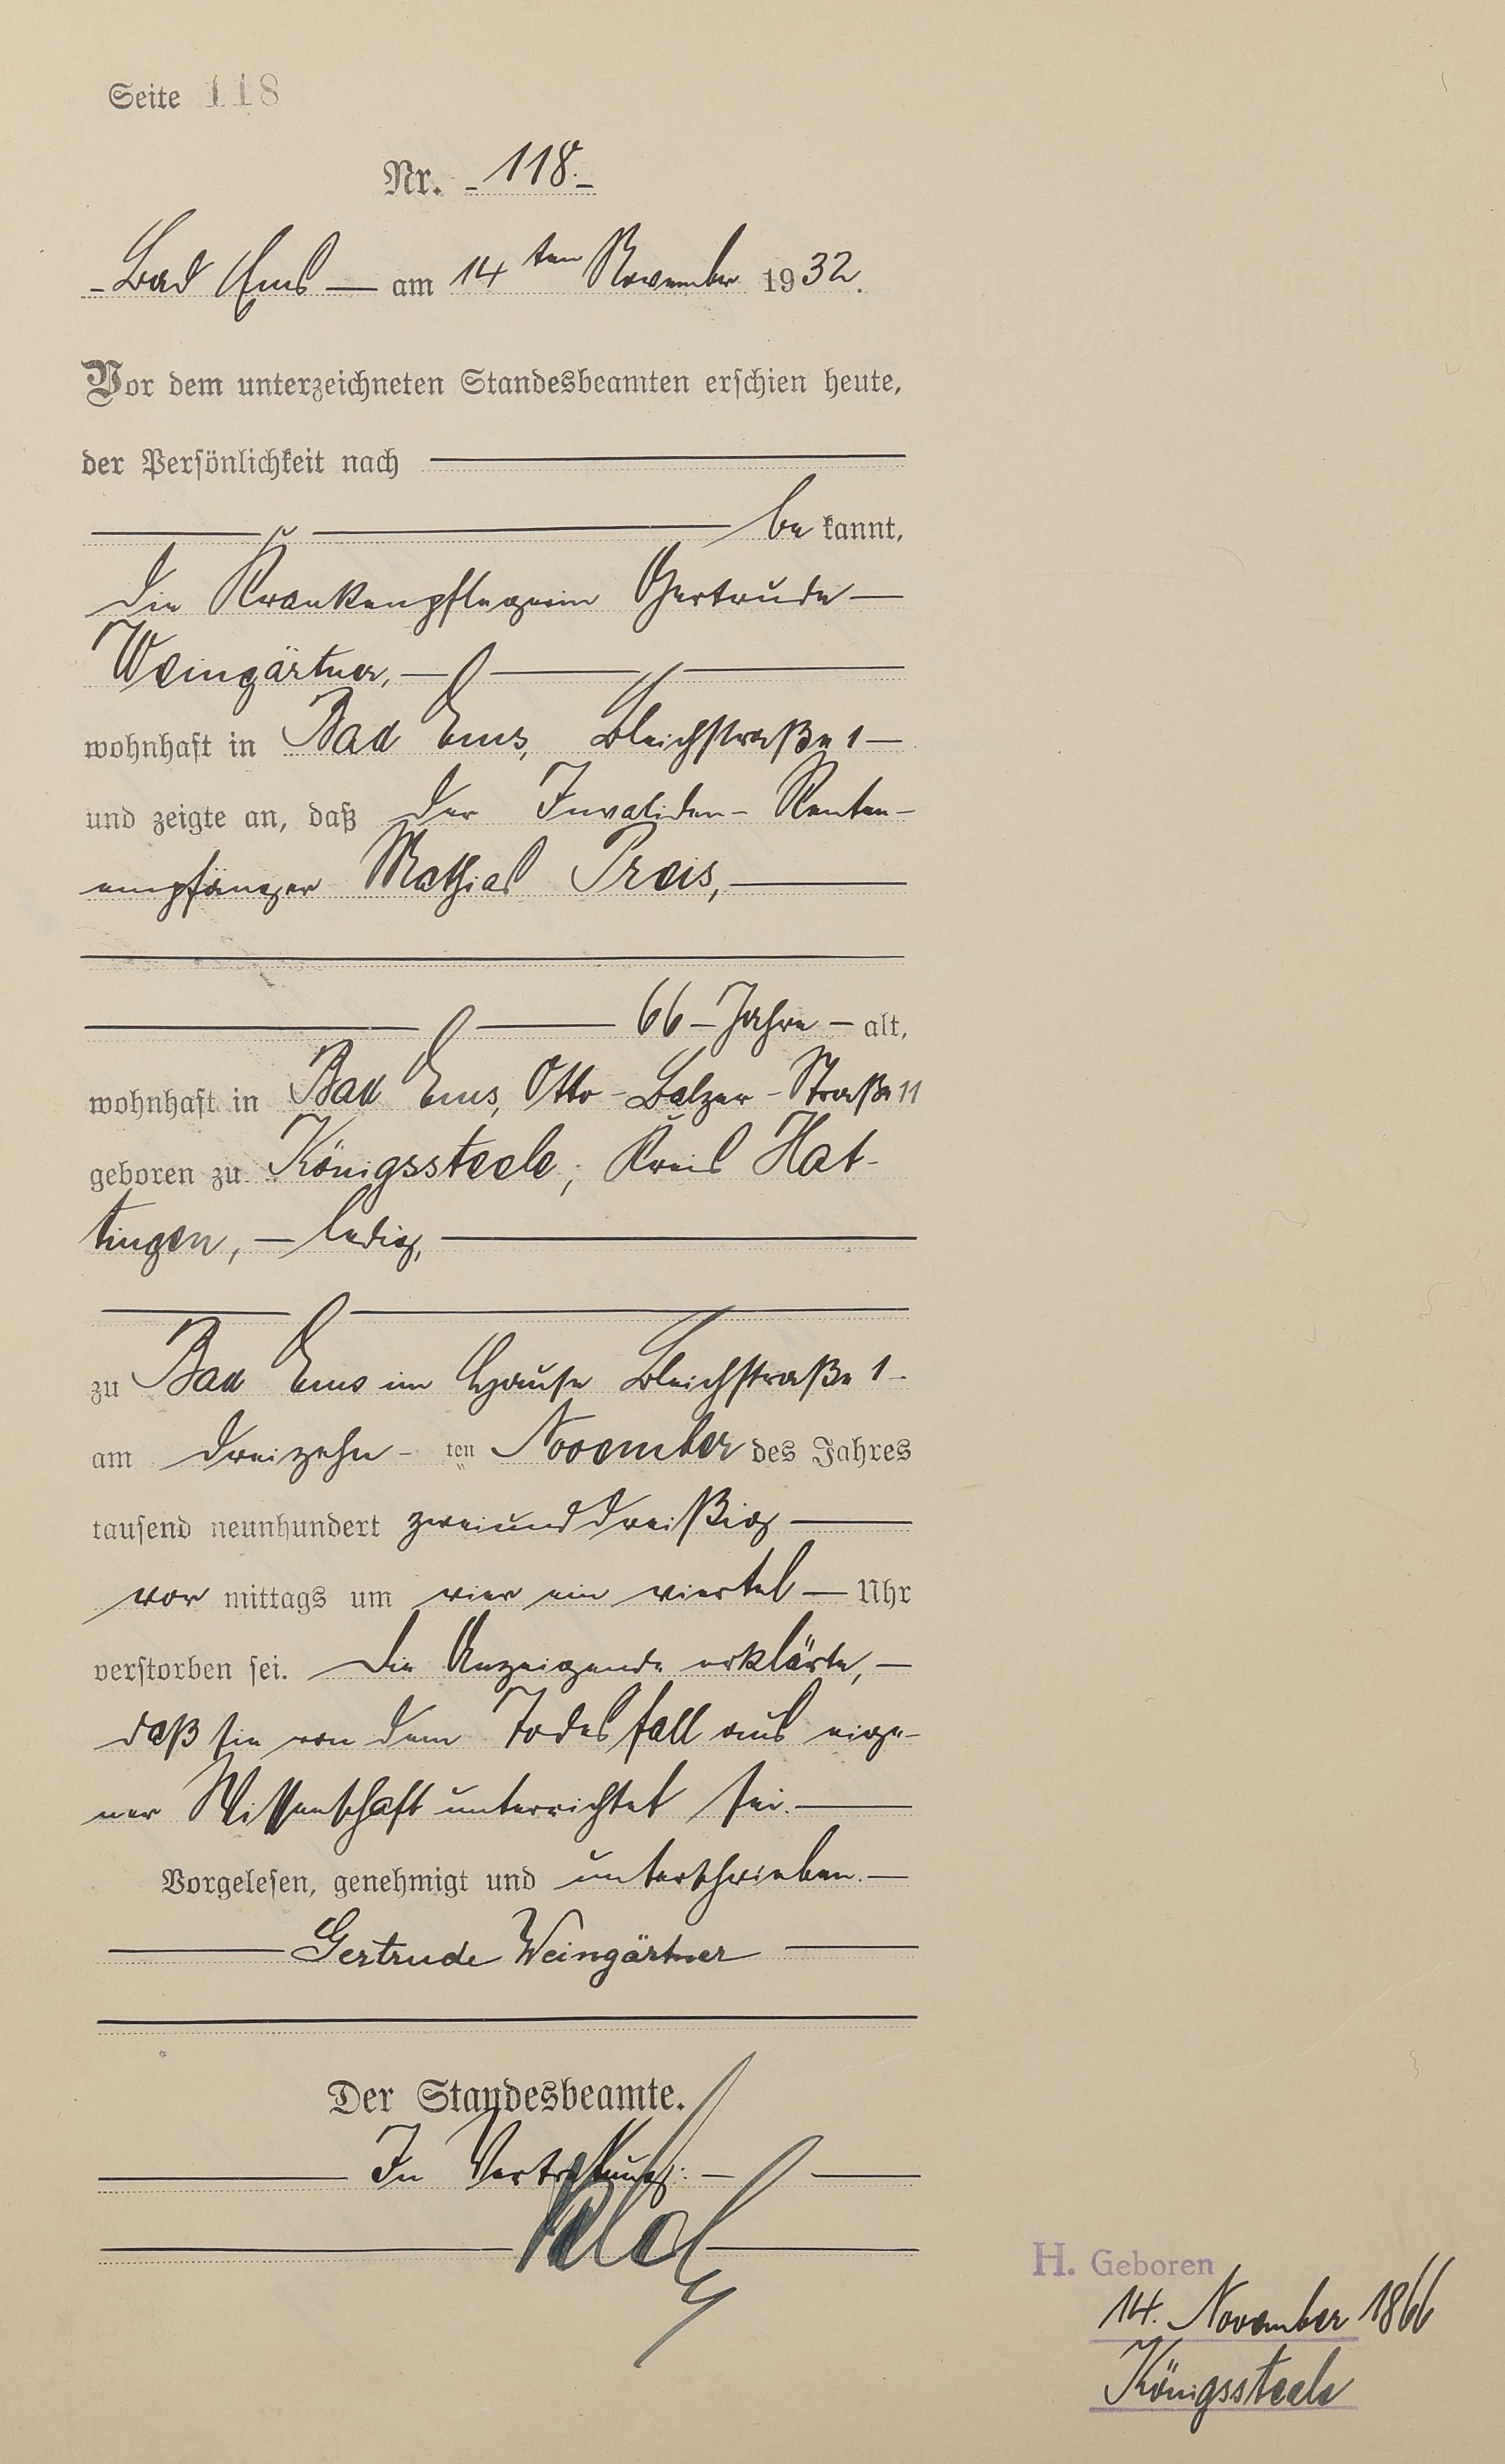 Seite 118
Nr. - 118. -
- Bad Ems — am 14ten November 1932.
Vor dem unterzeichneten Standesbeamten erschien heute,
der Persönlichkeit nach
bekannt,
die Krankenpflegerin Gertrude —
Weingärtner, —
wohnhaft in Bad Ems, Bleichstraße 1 —
und zeigte an, daß der Invaliden- Renten-
empfänger Mathias Preis, —
66 - Jahre - alt,
wohnhaft in Bad Ems, Otto - Balzer - Straße 11
geboren zu Königssteele, Kreis Hat-
tingen, — ledig, —
zu Bad Ems im Hause Bleichstraße 1 -
am dreizehn - ten November des Jahres
tausend neunhundert zweiunddreißig —
vor mittags um vier ein viertel — Uhr
verstorben sei. Die Anzeigende erklärte, —
daß sie von dem Todesfall aus eige-
ner Wissenschaft unterrichtet sei. —
Vorgelesen, genehmigt und unterschrieben. —
Gertrude Weingärtner
Der Standesbeamte.
In Vertretung: —
H. Geboren
14. November 1866
Königssteele